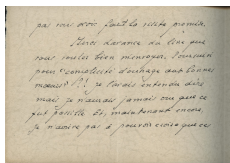 pas vous avoir fait la visite promise,
Merci d'avance du livre que
vous voulez bien m'envoyer. Poursuivi
pour "complicité d'outrage aux bonnes
mœurs" ?! je l'avais entendu dire
mais je n'aurais jamais cru que ce
fut possible et, maintenant encore,
je n'arrive pas à pouvoir croire que ce